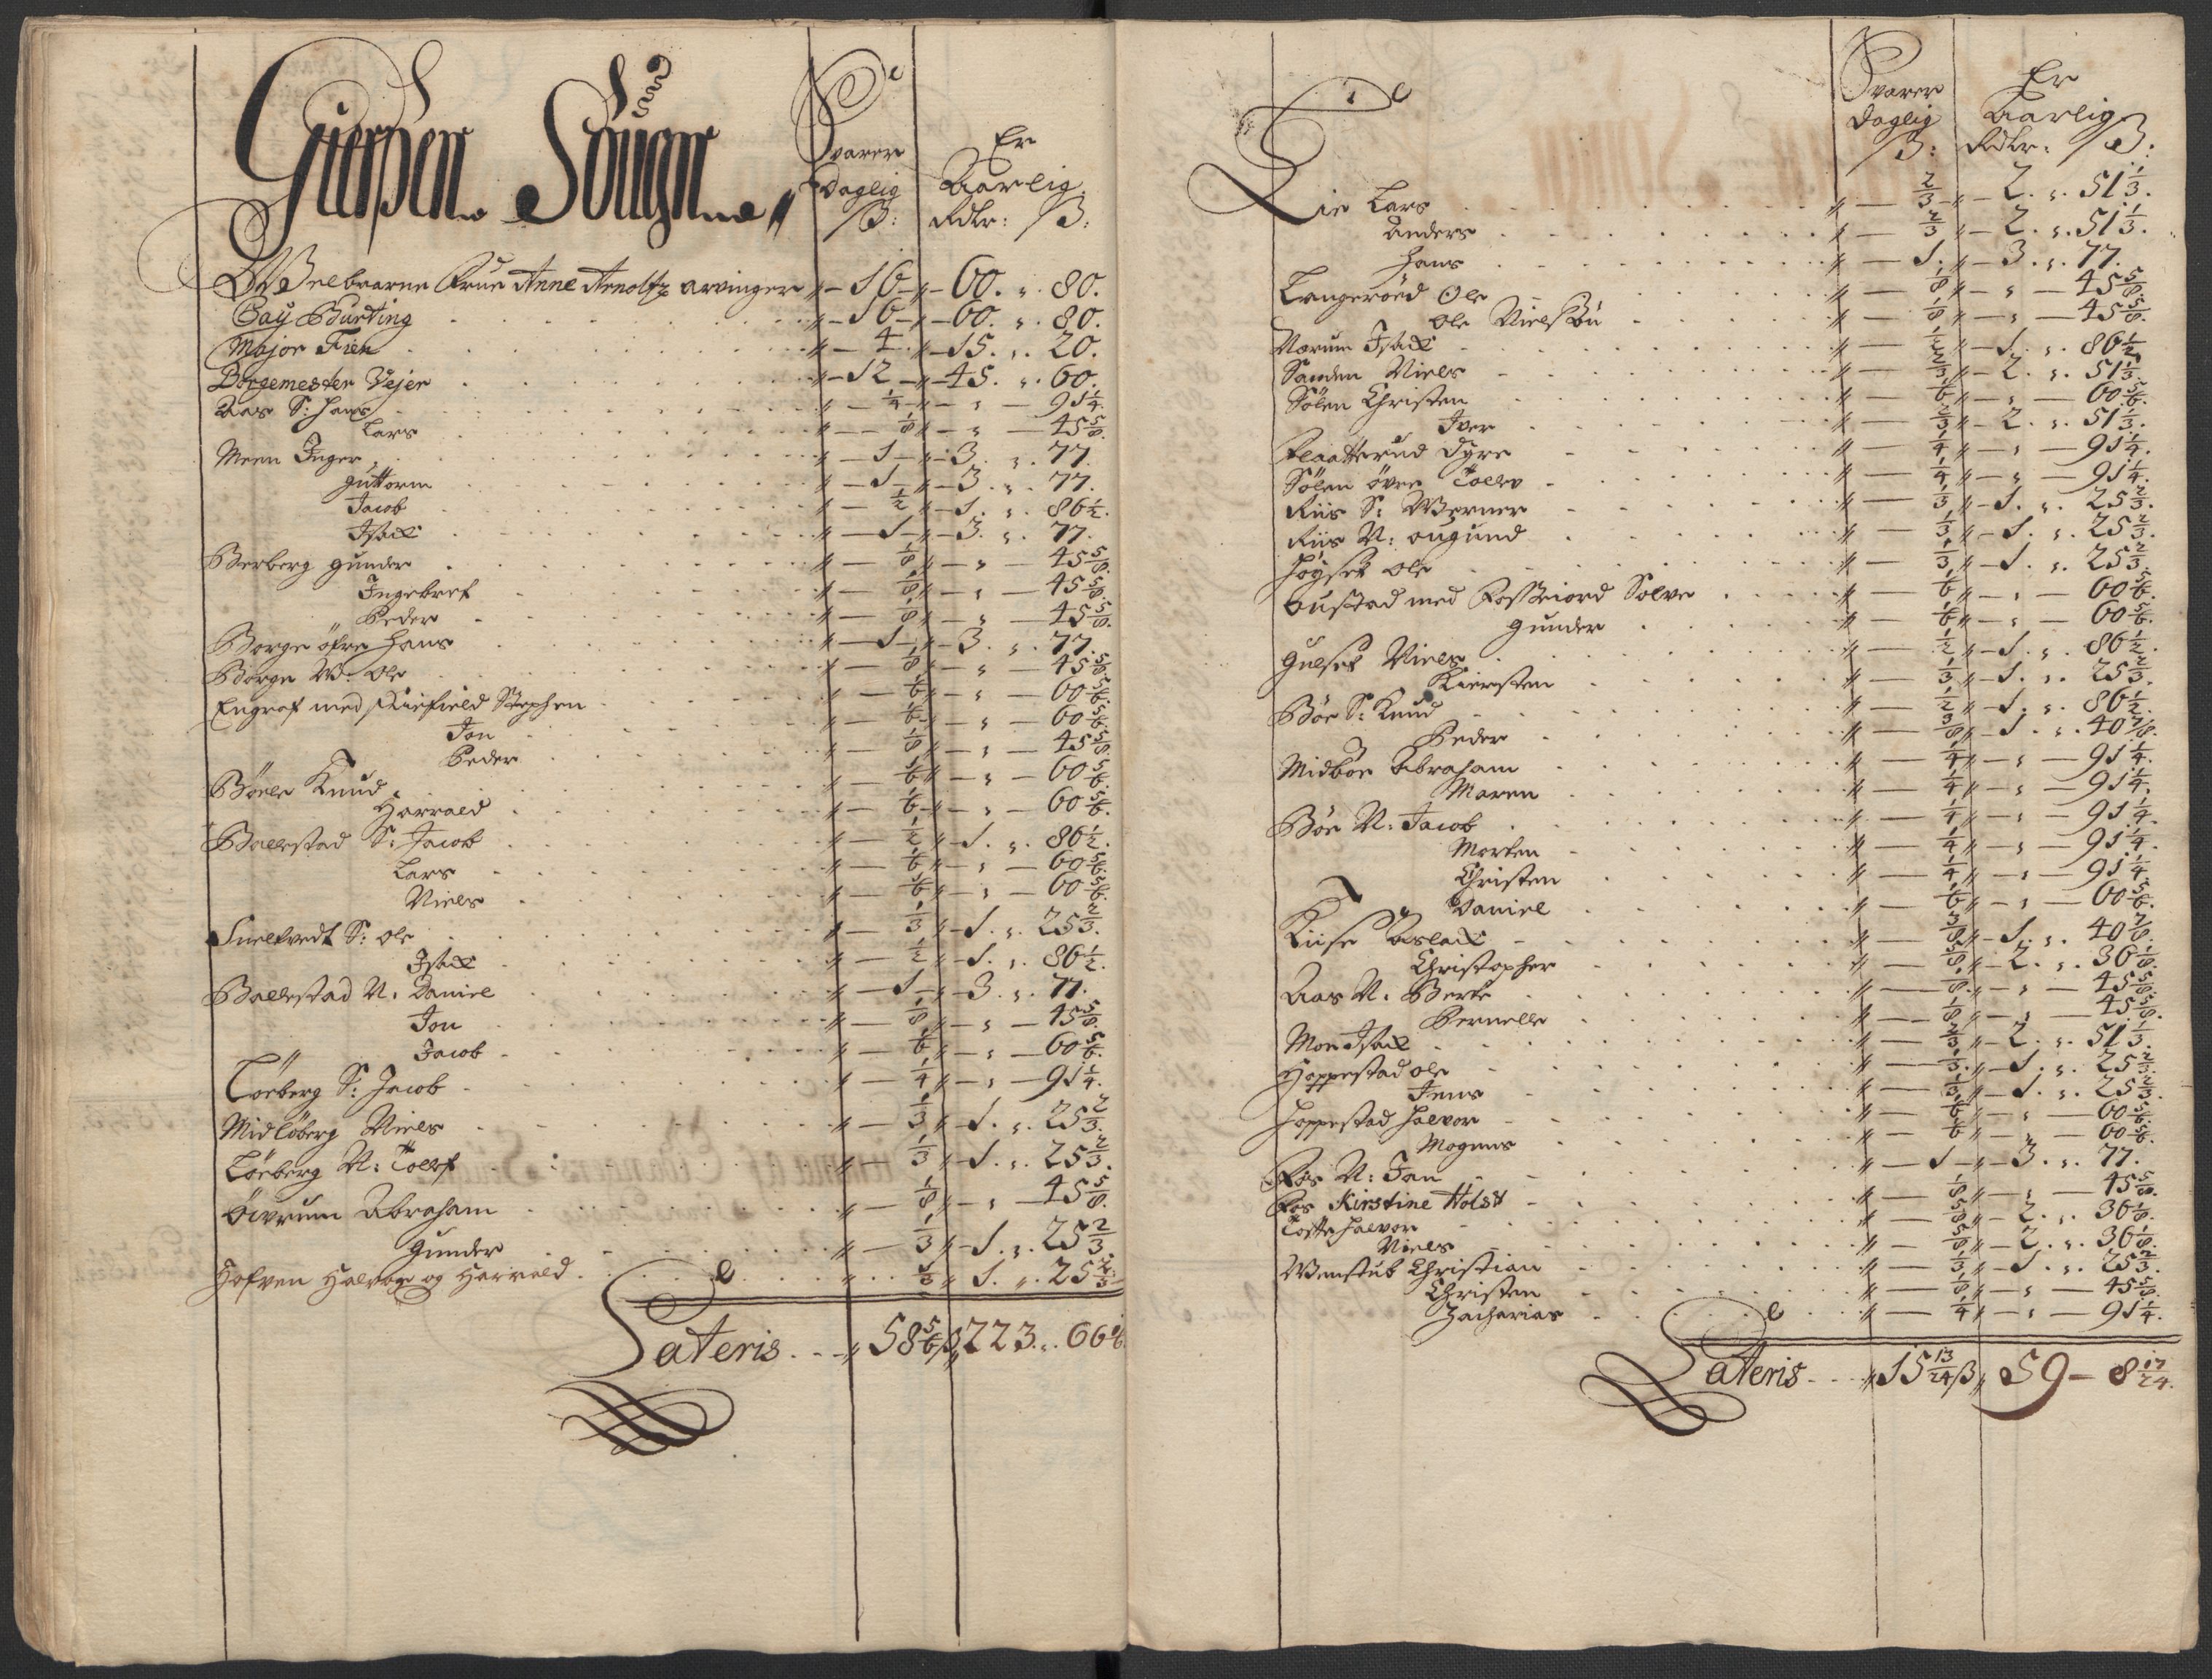 Gierpen Sougn
Svarer Daglig ß: Er Aarlig Rdlr: ß:
Welbaarne Frue Anne Arnoltz arvinger 16 60. 80.
Caÿ Burting 16 60. 80.
Major Fien 4 15. 20.
Borgemester Vejer 12 45. 60.
Aas S: Hans 1/4 - 91 1/4.
Lars 1/8 - 45 5/8.
Meen Inger 1 3. 77.
Guttorm 1 3. 77.
Jacob 1/2 1. 86 1/2.
Isack 1 3. 77.
Berberg Gunder 1/8 - 45 5/8.
Ingebret 1/8 - 45 5/8.
Peder 1/8 - 45 5/8.
Borge öfre Hans 1 3. 77.
Borge N: Ole 1/8 - 45 5/8.
Engraf med Stephen 1/6 - 60 5/6.
Jon 1/6 - 60 5/6.
Peder 1/8 - 45 5/8.
Böele Knud 1/6 - 60 5/6.
Harrald 1/6 - 60 5/6.
Ballestad S: Jacob 1/2 1. 86 1/2.
Lars 1/6 - 60 5/6.
Niels 1/6 - 60 5/6.
Sneltvedt S: Ole 1/3 1. 25 2/3.
Isack 1/2 1. 86 1/2.
Ballestad N: Daniel 1 3. 77.
Jon 1/8 - 45 5/8.
Jacob 1/6 - 60 5/6.
Löeberg S: Jacob 1/4 - 91 1/4.
Midlöberg Niels 1/3 1. 25 2/3.
Löeberg N: Tollef 1/3 1. 25 2/3.
Öivrum Abraham 1/8 - 45 5/8.
Gunder 1/3 1. 25 2/3
Hofven Halvor og Harrald 1/3 1. 25 2/3
Lateris 58 5/6 ß 223. 66 1/6
Svarer Daglig ß: Er Aarlig Rdlr: ß:
Lie Lars 2/3 2. 51 1/3.
Anders 2/3 2. 51 1/3.
Hans 1. 3. 77.
Langeröed Ole 1/8 - 45 5/8.
Ole Nielsön 1/8 - 45 5/8.
Nærum Isack 1/2 1. 86 1/2.
Sanden Niels 2/3 2. 51 1/3.
Sölen Christen 1/6 - 60 5/6.
Iver 2/3 2. 51 1/3.
Flaatterud Dyre 1/4 - 91 1/4.
Sölen övre Tollev 1/4 - 91 1/4.
Riis S: Werner 1/3 1. 25 2/3.
Riis N: Ougund 1/3 1. 25 2/3.
Höyset Ole 1/3 1. 25 2/3.
Oustad med Solve 1/6 - 60 5/6.
Gunder 1/6 - 60 5/6.
Gulset Niels 1/2 1. 86 1/2.
Kiersten 1/3 1. 25 2/3.
Böe S: Knud 1/2 1. 86 1/2.
Peder 3/8 1. 40 7/8.
Midböe Abraham 1/4 - 91 1/4.
Maren 1/4 - 91 1/4.
Böe N: Jacob 1/4 - 91 1/4.
Morten 1/4 - 91 1/4.
Christen 1/4 - 91 1/4.
Daniel 1/6 - 60 5/6.
Kiise Aslack 3/8 1. 40 7/8.
Christopher 5/8 2. 36 1/8.
Aas N: Berte 1/8 - 45 5/8.
Pernelle 1/8 - 45 5/8.
Moe Isack 2/3 2. 51 1/3.
Hoppestad Ole 1/3 1. 25 2/3.
Jens 1/3 1. 25 2/3.
Hoppestad Halvor 1/6 - 60 5/6.
Mogens 1/6 - 60 5/6.
Fos N: Jan 1 3. 77.
Fos Kirstine Holst 1/8 - 45 5/8.
Tofte Halvor 5/8 2. 36 1/8.
Niels 5/8 2. 36 1/8.
Wenstub Christian 1/3 1. 25 2/3.
Christen 1/8 - 45 5/8.
Zacharias 1/4 - 91 1/4.
Lateris 15 13/24 ß 59 - 8 17/24.